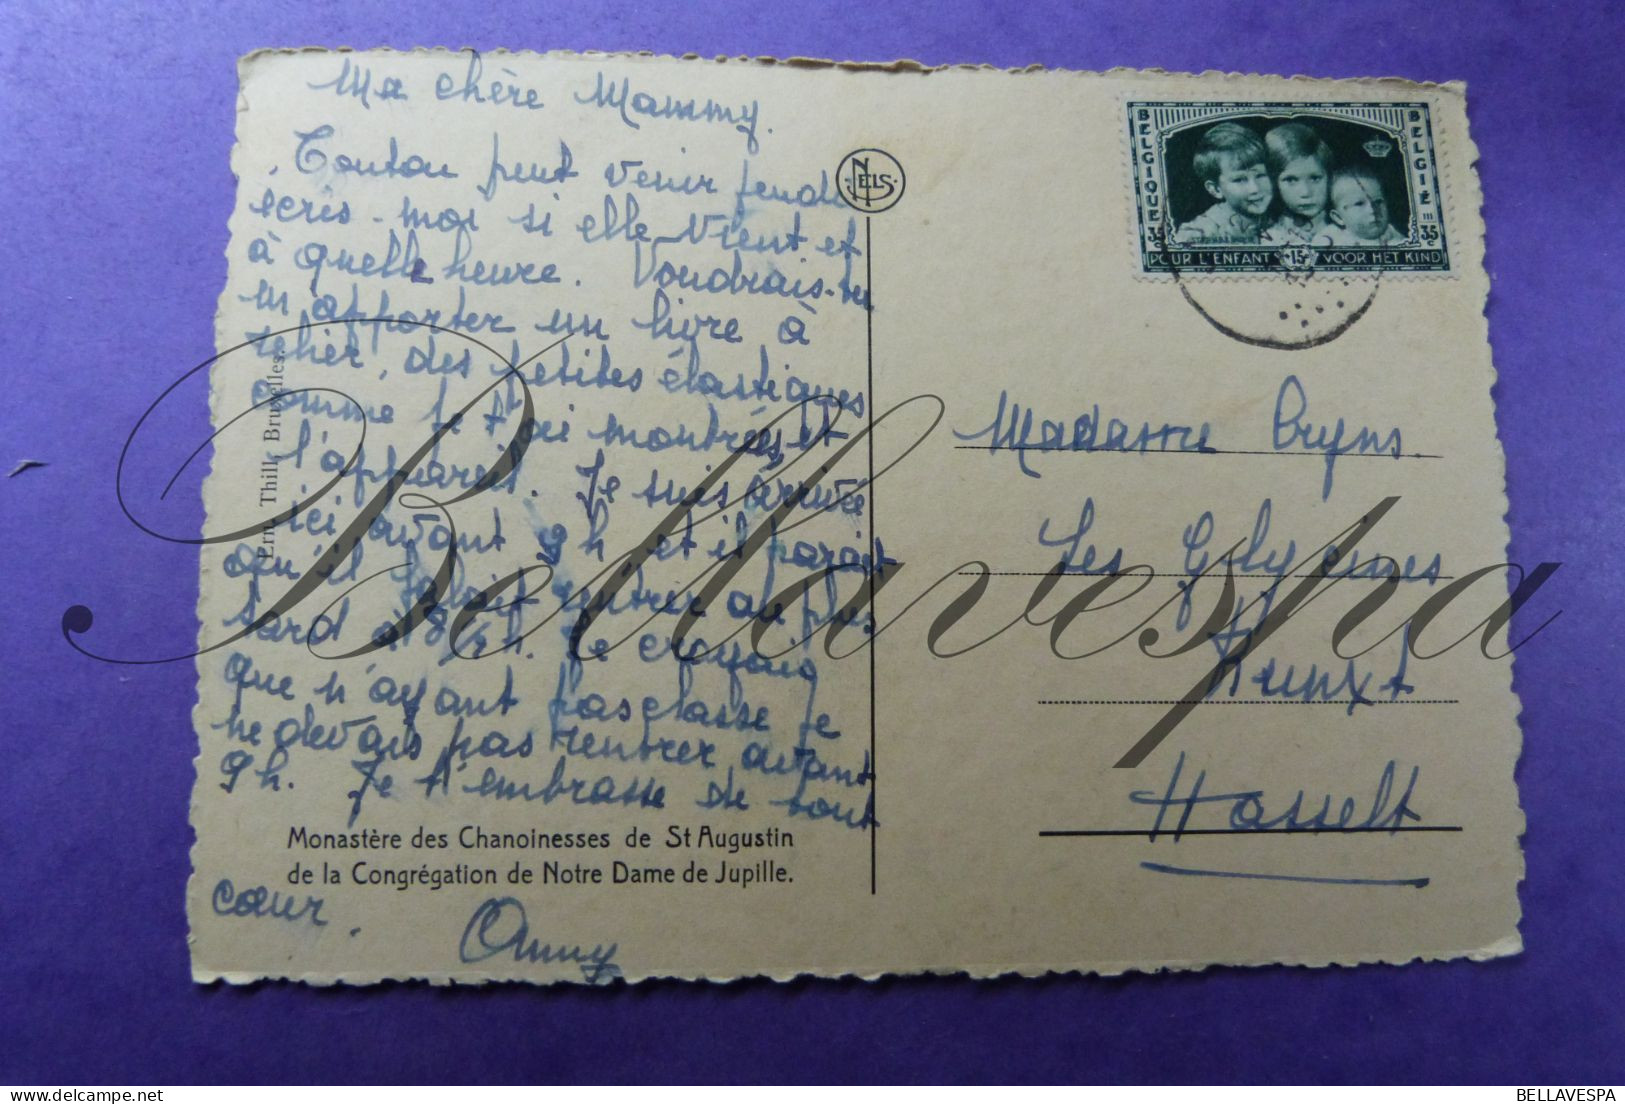 Ma chère Mammy.
Toutou peut venir jeudi
écris-moi si elle vient et
à quelle heure. Voudrais-tu
m'apporter un livre à
relier, des petites élastiques
comme je t'ai montrées, et
l'appareil. Je suis arrivée
ici avant 9h et il paraît
qu'il fallait rentrer au plus
tard à 8 1/2 h. Je croyais
que n'ayant pas classe je
ne devais pas rentrer avant
9h. Je t'embrasse de tout
cœur.
Anny
Monastère des Chanoinesses de St Augustin
de la Congrégation de Notre Dame de Jupille.
Ern. Thill, Bruxelles.
NELS
BELGIQUE
BELGIË
35 c
35 c
POUR L'ENFANT +15 c VOOR HET KIND
Madame Cryns.
Les Glycines
Kunxt
Hasselt
Bellavespa
BELLAVESPA